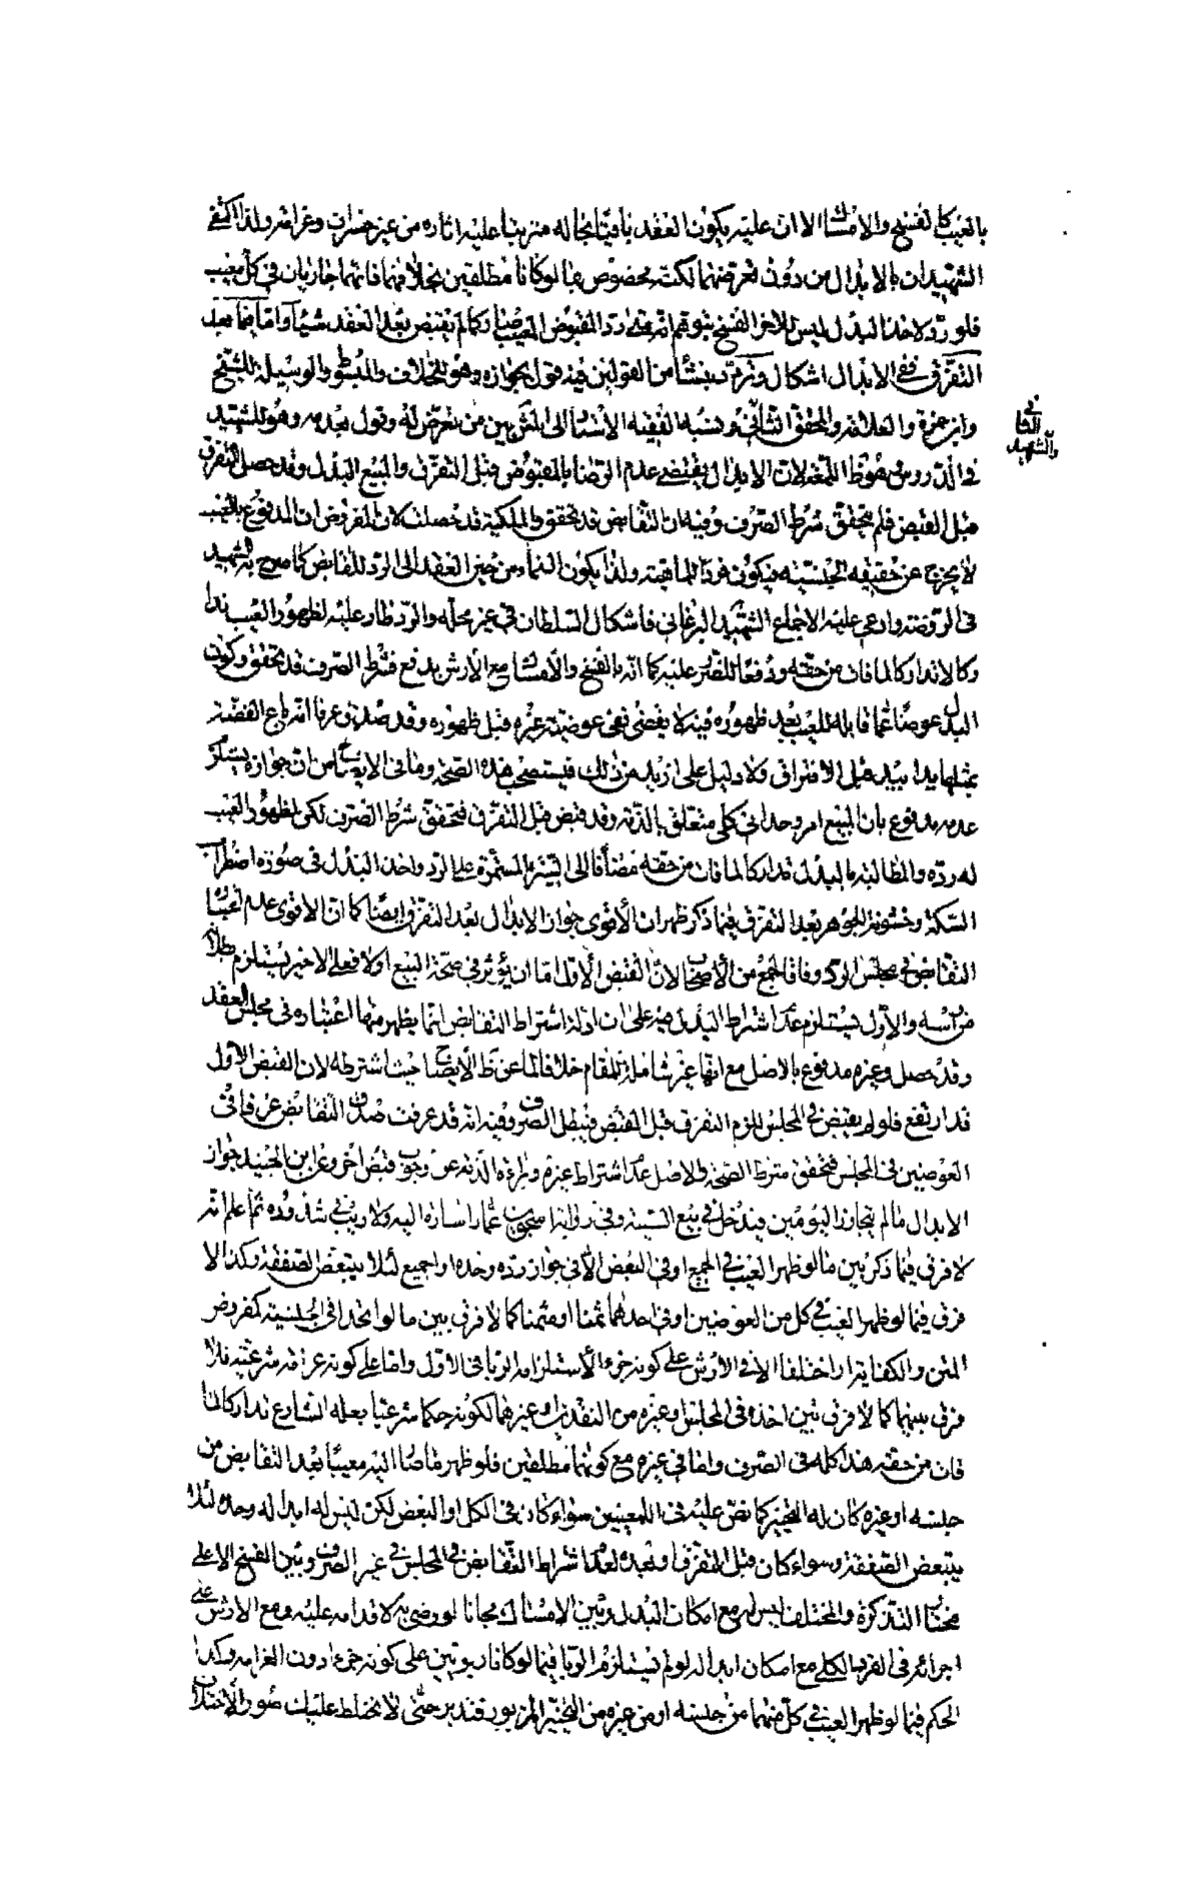 بالعيب كالفسخ والامساك الا ان عليه يكون العقد باقيا بحاله مترتبا عليه اثاره من غير ضرر وغرامة ولذا اكتفى
الشهيدان بالابدال من دون تعرضهما لكنه مخصوص بما لو كانا مطلقين بخلافهما فانهما جاريان في كل معيب
فلو رد ولاخذ البدل ليس للاخر الفسخ بتوهم انه متى رد المقبوض صار كما لم يقبض بعد العقد شيئا واما فيما بعد
التفرق ففي الابدال اشكال وتردد ينشأ من القولين فيه قول بجوازه وهو للخلاف والمبسوط والوسيلة للشيخ
وابن حمزة والعلامة والمحقق الثاني ونسبه الفقيه الاستاد الى اكثر من تعرض له وقول بعدمه وهو للشهيد
في الدروس
قبل القبض فلم يتحقق شرط الصرف وفيه ان التقابض قد تحقق والملكية قد حصلت لان المفروض ان المدفوع بالعيب
لا يخرج عن حقيقة الجنسية فيكون فردا للماهية ولذا يكون النماء من حين العقد الى الرد للقابض كما صرح به الشهيد
في الروضة وادعى عليه الاجماع الشهيد البرغاني فاشكال السلطان في غير محله والرد طار عليه لظهور العيب تدا
ركا لاتداركا لما فات من حقه ودفعا للضرر عليه كما انه بالفسخ والامساك مع الارش يدفع فشرط الصرف قد تحقق وكون
البدل عوضا عما قابله للعيب بعد ظهوره فيه لا يقضى نفي عوضية غيره قبل ظهوره وقد صدق عرفا انه باع الفضة
بمثلها يدا بيد قبل الافتراق ولا دليل على ازيد من ذلك فيستصحب هذه الصحة وما في الايضاح من ان جوازه يستلزم
عدمه مدفوع بان المبيع امر وحداني كلي متعلق بالذمة وقد قبض قبل التفرق فتحقق شرط الصرف لكن لظهور العيب
له رده والمطالبة بالبدل تداركا لما فات من حقه مضافا الى السيرة المستمرة على الرد واخذ البدل في صورة اضطراب
السكة وخشونة الجوهر بعد التفرق فيما ذكر ظهر ان الاقوى جواز الابدال بعد التفرق ايضا كما ان الاقوى عدم اعتبار
التقابض في مجلس الرد وفاقا لجمع من الاصحاب لان القبض الاول اما ان يؤثر في صحة البيع او لا فعلى الاخير يستلزم بطلانه
من رأسه والاول يستلزم عدم اشتراط البدل فيه على ان ادلة اشتراط التقابض انما يظهر منها اعتباره في مجلس العقد
وقد حصل وغيره مدفوع بالاصل مع انها غير شاملة للمقام خلافا لما عن الايضاح حيث اشترطه لان القبض الاول
قد ارتفع فلو لم يقبض في المجلس لزم التفرق قبل القبض فيبطل الصرف وفيه انه قد عرفت صدق التقابض عرفا في
العوضين في المجلس فتحقق شرط الصحة والاصل عدم اشتراط غيره وبراءة الذمة عن وجوب قبض اخر وعن ابن الجنيد جواز
الابدال ما لم يتجاوز اليومين فيدخل في بيع النسية وفي رواية اسحق بن عمار اشارة اليه ولا ريب في شذوذه ثم اعلم انه
لا فرق فيما ذكر بين ما لو ظهر العيب في الجميع او في البعض الا في جواز رده وحده او الجميع لئلا يتبعض الصفقة وكذا لا
فرق فيما لو ظهر العيب في كل من العوضين او في احدهما ثمنا او مثمنا كما لا فرق بين ما لو اتحدا في الجنسية كمفروض
المتن والكفاية او اختلفا الا في الارش على كونه جزءا لاستلزامه الربا في الاول واما على كونه غرامة شرعية فلا
فرق بينهما كما لا فرق بين اخذه في المجلس وغيره من النقدين او غيرهما لكونه حكما شرعيا جعله الشارع تداركا لما
فات من حقه هذا كله في الصرف واما في غيره مع كونهما مطلقين فلو ظهر ما صار اليه معيبا بعد التقابض من
جنسه او غيره كان له التخيير كما نص عليه في المعينين سواء كان في الكل او البعض لكن ليس له ابداله وحده لئلا
يتبعض الصفقة وسواء كان قبل التفرق او بعده لعدم اشتراط التقابض في المجلس في غير الصرف وبين الفسخ الا على
مختار التذكرة والمختلف ليس له مع امكان البدل وبين الامساك مجانا لو رضي به لاقدامه عليه ومع الارش على
اجرائه في الفرد الكلي مع امكان ابداله لو لم يستلزم الربا فيما لو كانا ربويين على كونه جزءا دون الغرامة وكذا
الحكم فيما لو ظهر العيب في كل منهما من جنسه او من غيره من التخيير المزبور فتدبر حتى لا يختلط عليك صور الاختلاف